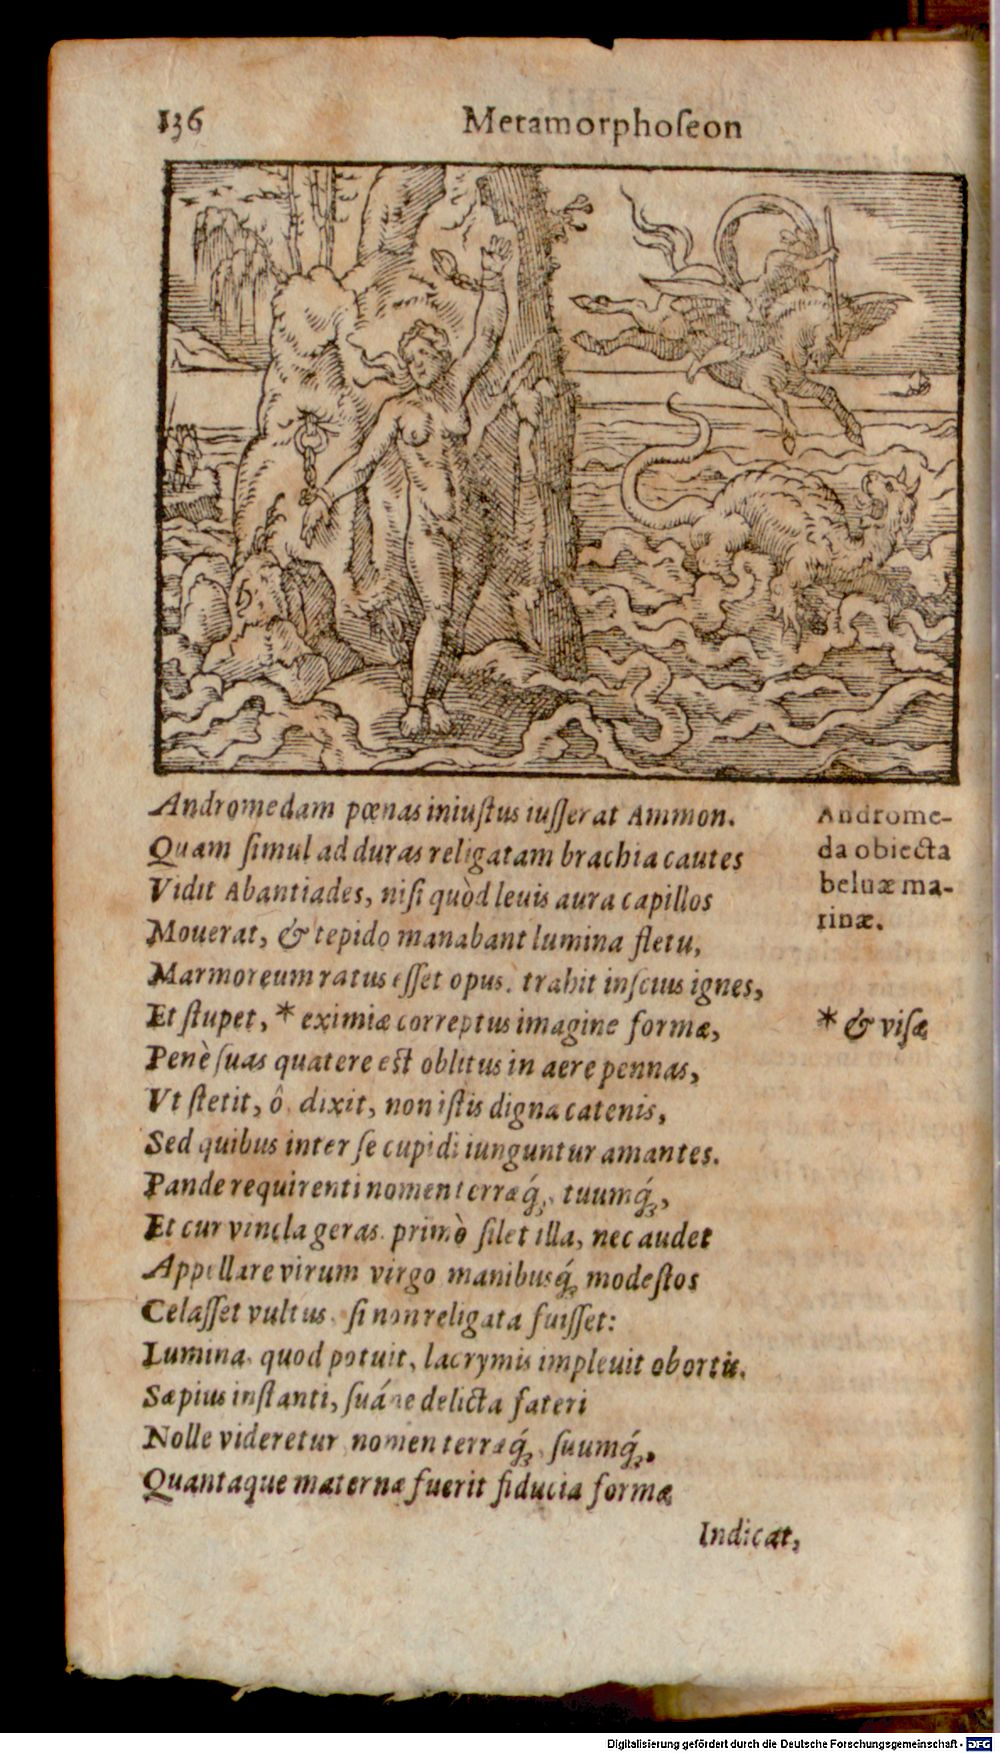 136 Metamorphoſeon
Andromedam pœnas iniuſtus iuſſerat Ammon.
Quam ſimul ad duras religatam brachia cautes
Vidit Abantiades, niſi quòd leuis aura capillos
Mouerat, & tepido manabant lumina fletu,
Marmoreum ratus eſſet opus. trahit inſcius ignes,
Et ſtupet, * eximiæ correptus imagine formæ,
Penè ſuas quatere est oblitus in aere pennas,
Vt ſtetit, ô dixit, non iſtis digna catenis,
Sed quibus inter ſe cupidi iunguntur amantes.
Pande requirenti nomen terræq́;, tuumq́;,
Et cur vincla geras. primò ſilet illa, nec audet
Appellare virum virgo manibusq́; modeſtos
Celaſſet vultus, ſi non religata fuiſſet:
Lumina, quod potuit, lacrymis impleuit obortis.
Sæpius inſtanti, ſuáne delicta fateri
Nolle videretur, nomen terræq́;, ſuumq́;,
Quantaque maternæ fuerit fiducia formæ
Indicat,
Androme-
da obiecta
beluæ ma-
rinæ.
* & viſæ
Digitalisierung gefördert durch die Deutsche Forschungsgemeinschaft - DFG